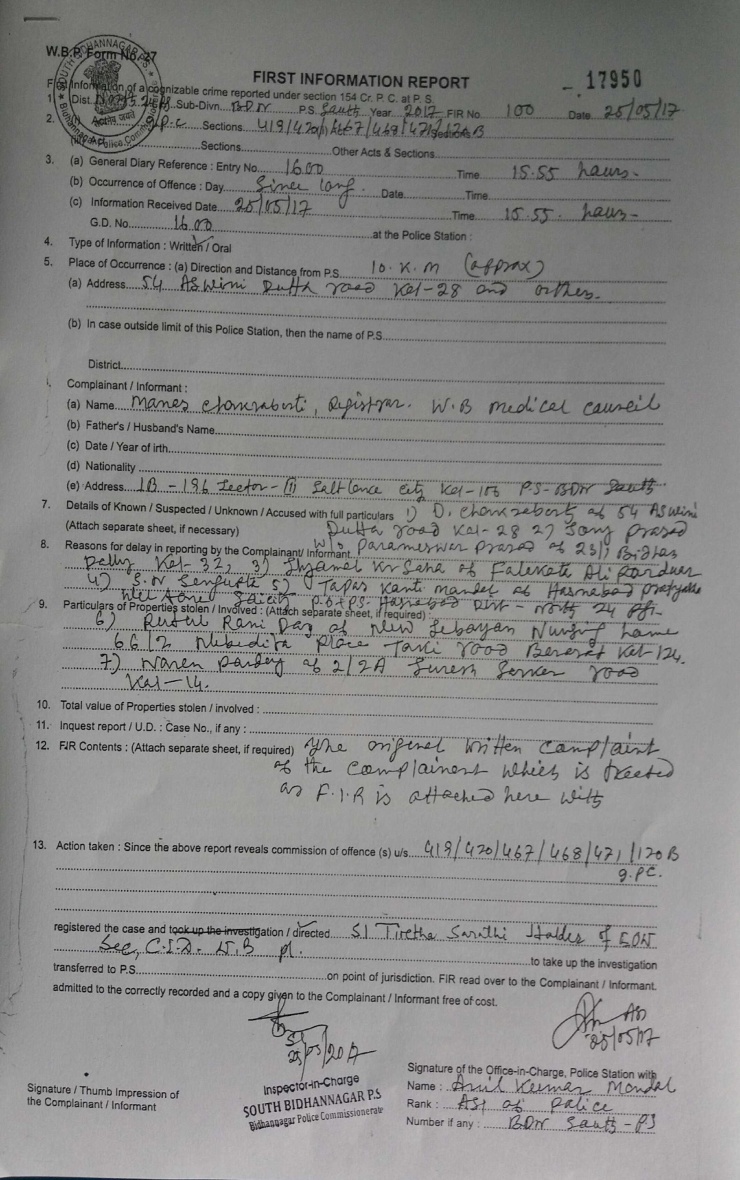 W.B.P. Form No. 27
FIRST INFORMATION REPORT
17950
First Information of a cognizable crime reported under section 154 Cr. P. C. at P. S.
1. Dist. Sub-Divn. BDN P.S. South Year 2017 FIR No 100 Date 25/05/17
2. (i) I.P.C Sections 419/420/467/468/471/120B
Sections Other Acts & Sections
3. (a) General Diary Reference : Entry No. 1600 Time 15.55 hours -
(b) Occurrence of Offence : Day Since long. Date Time
(c) Information Received Date 25/05/17 Time 15.55. hours -
G.D. No. 1600 at the Police Station :
4. Type of Information : Written / Oral
5. Place of Occurrence : (a) Direction and Distance from P.S. 10. K.M (approx)
(a) Address 54 Aswini Dutta road Kol-28 and others.
(b) In case outside limit of this Police Station, then the name of P.S.
District
Complainant / Informant :
(a) Name Manas Chakraborti, Registrar. W.B medical council
(b) Father's / Husband's Name
(c) Date / Year of birth
(d) Nationality
(e) Address IB-196 Sector-III Saltlake city Kol-106 P.S-BDN South
7. Details of Known / Suspected / Unknown / Accused with full particulars 1) D. Chakraborti of 54 Aswini
(Attach separate sheet, if necessary) Dutta road Kol-28 2) prasad
8. Reasons for delay in reporting by the Complainant/ Informant W/o Parameswar prasad of
Kol-32, 3) Shyamal Kr Saha of Falakata Alipurduar
4) S.N Sengupta 5) Tapas Kanti mandal of Hasnabad
P.O+PS- Hasnabad Dist - North 24
9. Particulars of Properties stolen / Involved : (Attach separate sheet, if required)
6) Rani Das of New Nursing home
66/2 Nibedita place Taki road Barasat Kol-124.
7) Naren Pandey of 2/2A Suresh Sarkar road
Kol-14.
10. Total value of Properties stolen / involved :
11. Inquest report / U.D. : Case No., if any :
12. FIR Contents : (Attach separate sheet, if required) The original written complaint
of the complainant which is treated
as F.I.R is attached here with
13. Action taken : Since the above report reveals commission of offence (s) u/s 419/420/467/468/471/120B
I.PC.
registered the case and took up the investigation / directed SI Tirtha Sarathi Halder of EOW
Sec, C.I.D. W.B pl. to take up the investigation
transferred to P.S. on point of jurisdiction. FIR read over to the Complainant / Informant.
admitted to the correctly recorded and a copy given to the Complainant / Informant free of cost.
ASI
25/05/17
25/05/2017
Inspector-in-Charge
SOUTH BIDHANNAGAR P.S
Bidhannagar Police Commissionerate
Signature / Thumb Impression of
the Complainant / Informant
Signature of the Office-in-Charge, Police Station with
Name : Anil Kumar Mondal
Rank : ASI of police
Number if any : BDN South - PS